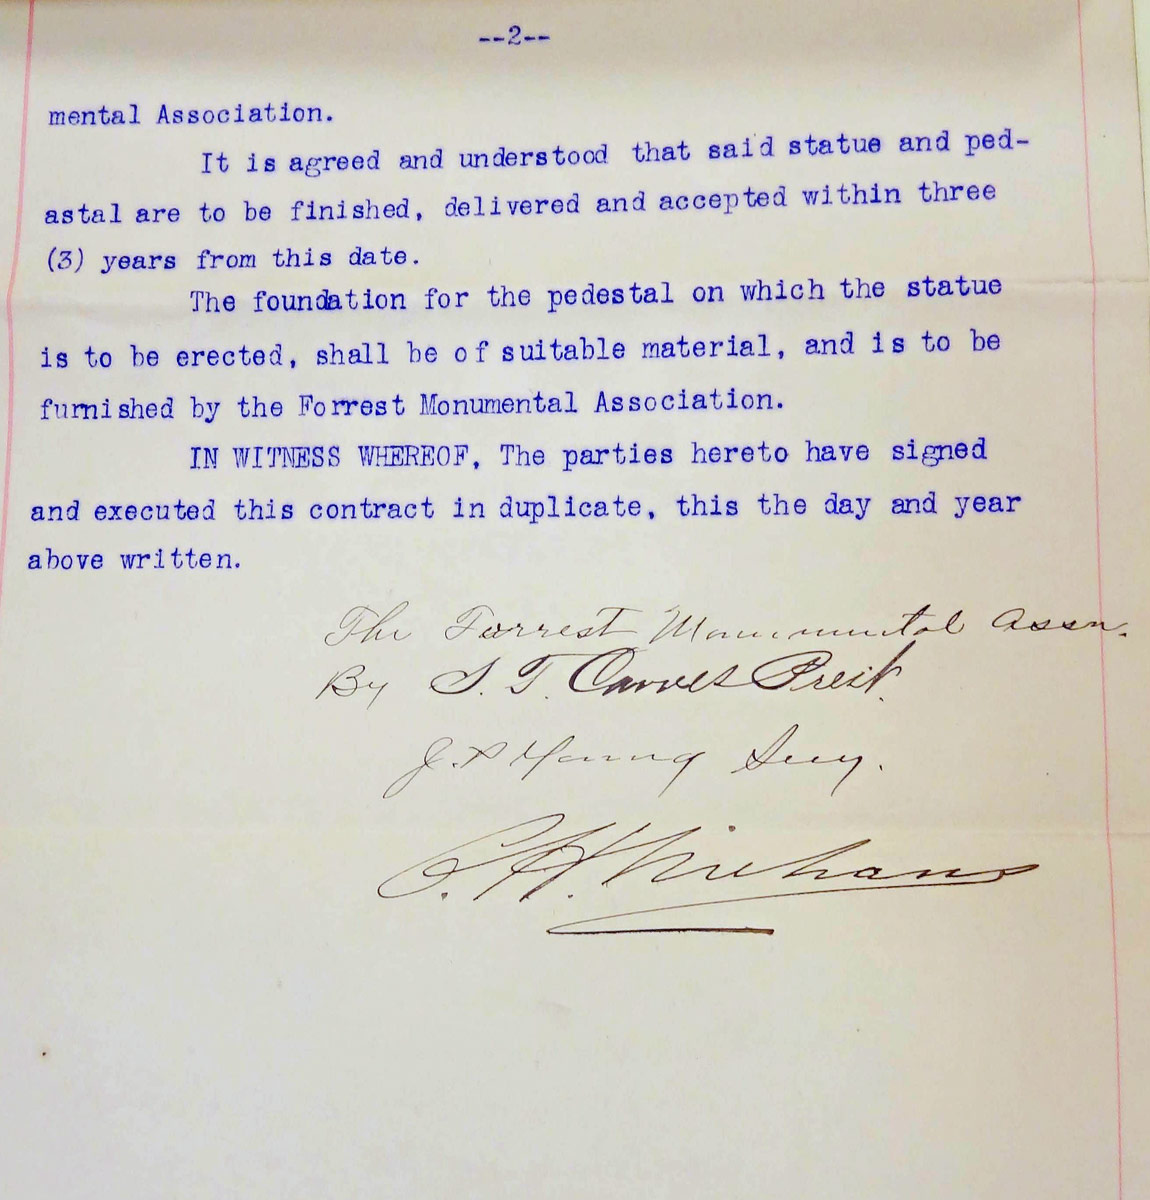 --2--
mental Association.
It is agreed and understood that said statue and ped-
astal are to be finished, delivered and accepted within three
(3) years from this date.
The foundation for the pedestal on which the statue
is to be erected, shall be of suitable material, and is to be
furnished by the Forrest Monumental Association.
IN WITNESS WHEREOF, The parties hereto have signed
and executed this contract in duplicate, this the day and year
above written.
The Forrest Monumental Assn.
By S. T. Carnes Prest.
J. P. Young Secy.
C. H. Niehaus